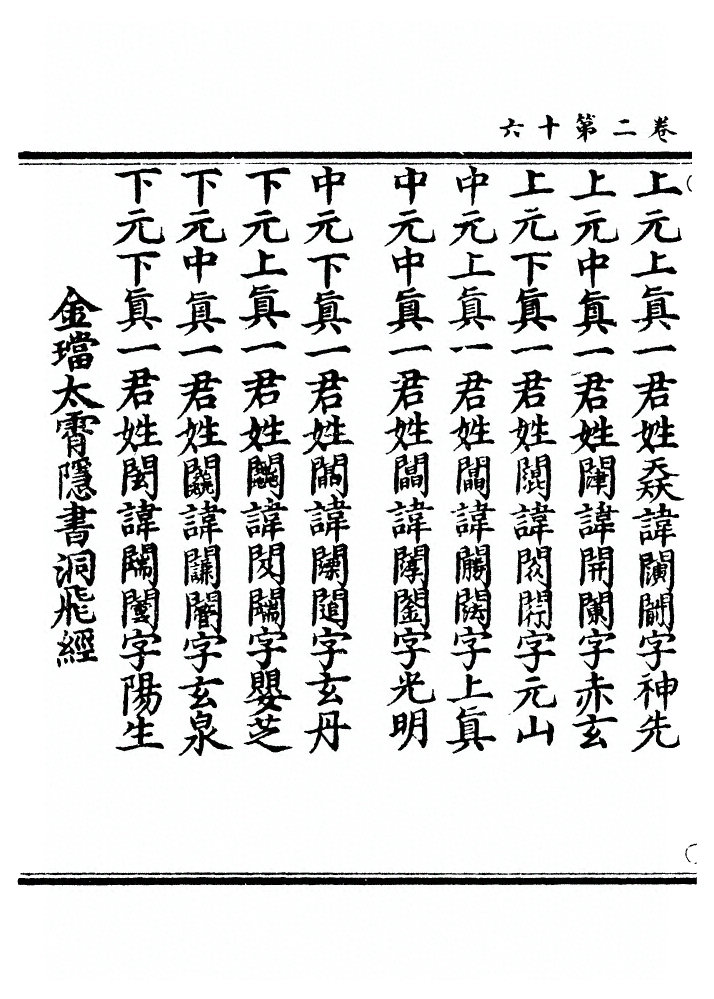 卷二第十六
上元上眞一君姓諱字神先
上元中眞一君姓諱開字赤玄
上元下眞一君姓諱字元山
中元上眞一君姓諱字上眞
中元中眞一君姓諱字光明
中元下眞一君姓諱字玄丹
下元上眞一君姓諱字嬰芝
下元中眞一君姓諱字玄泉
下元下眞一君姓諱字陽生
金璫太霄隱書洞飛經